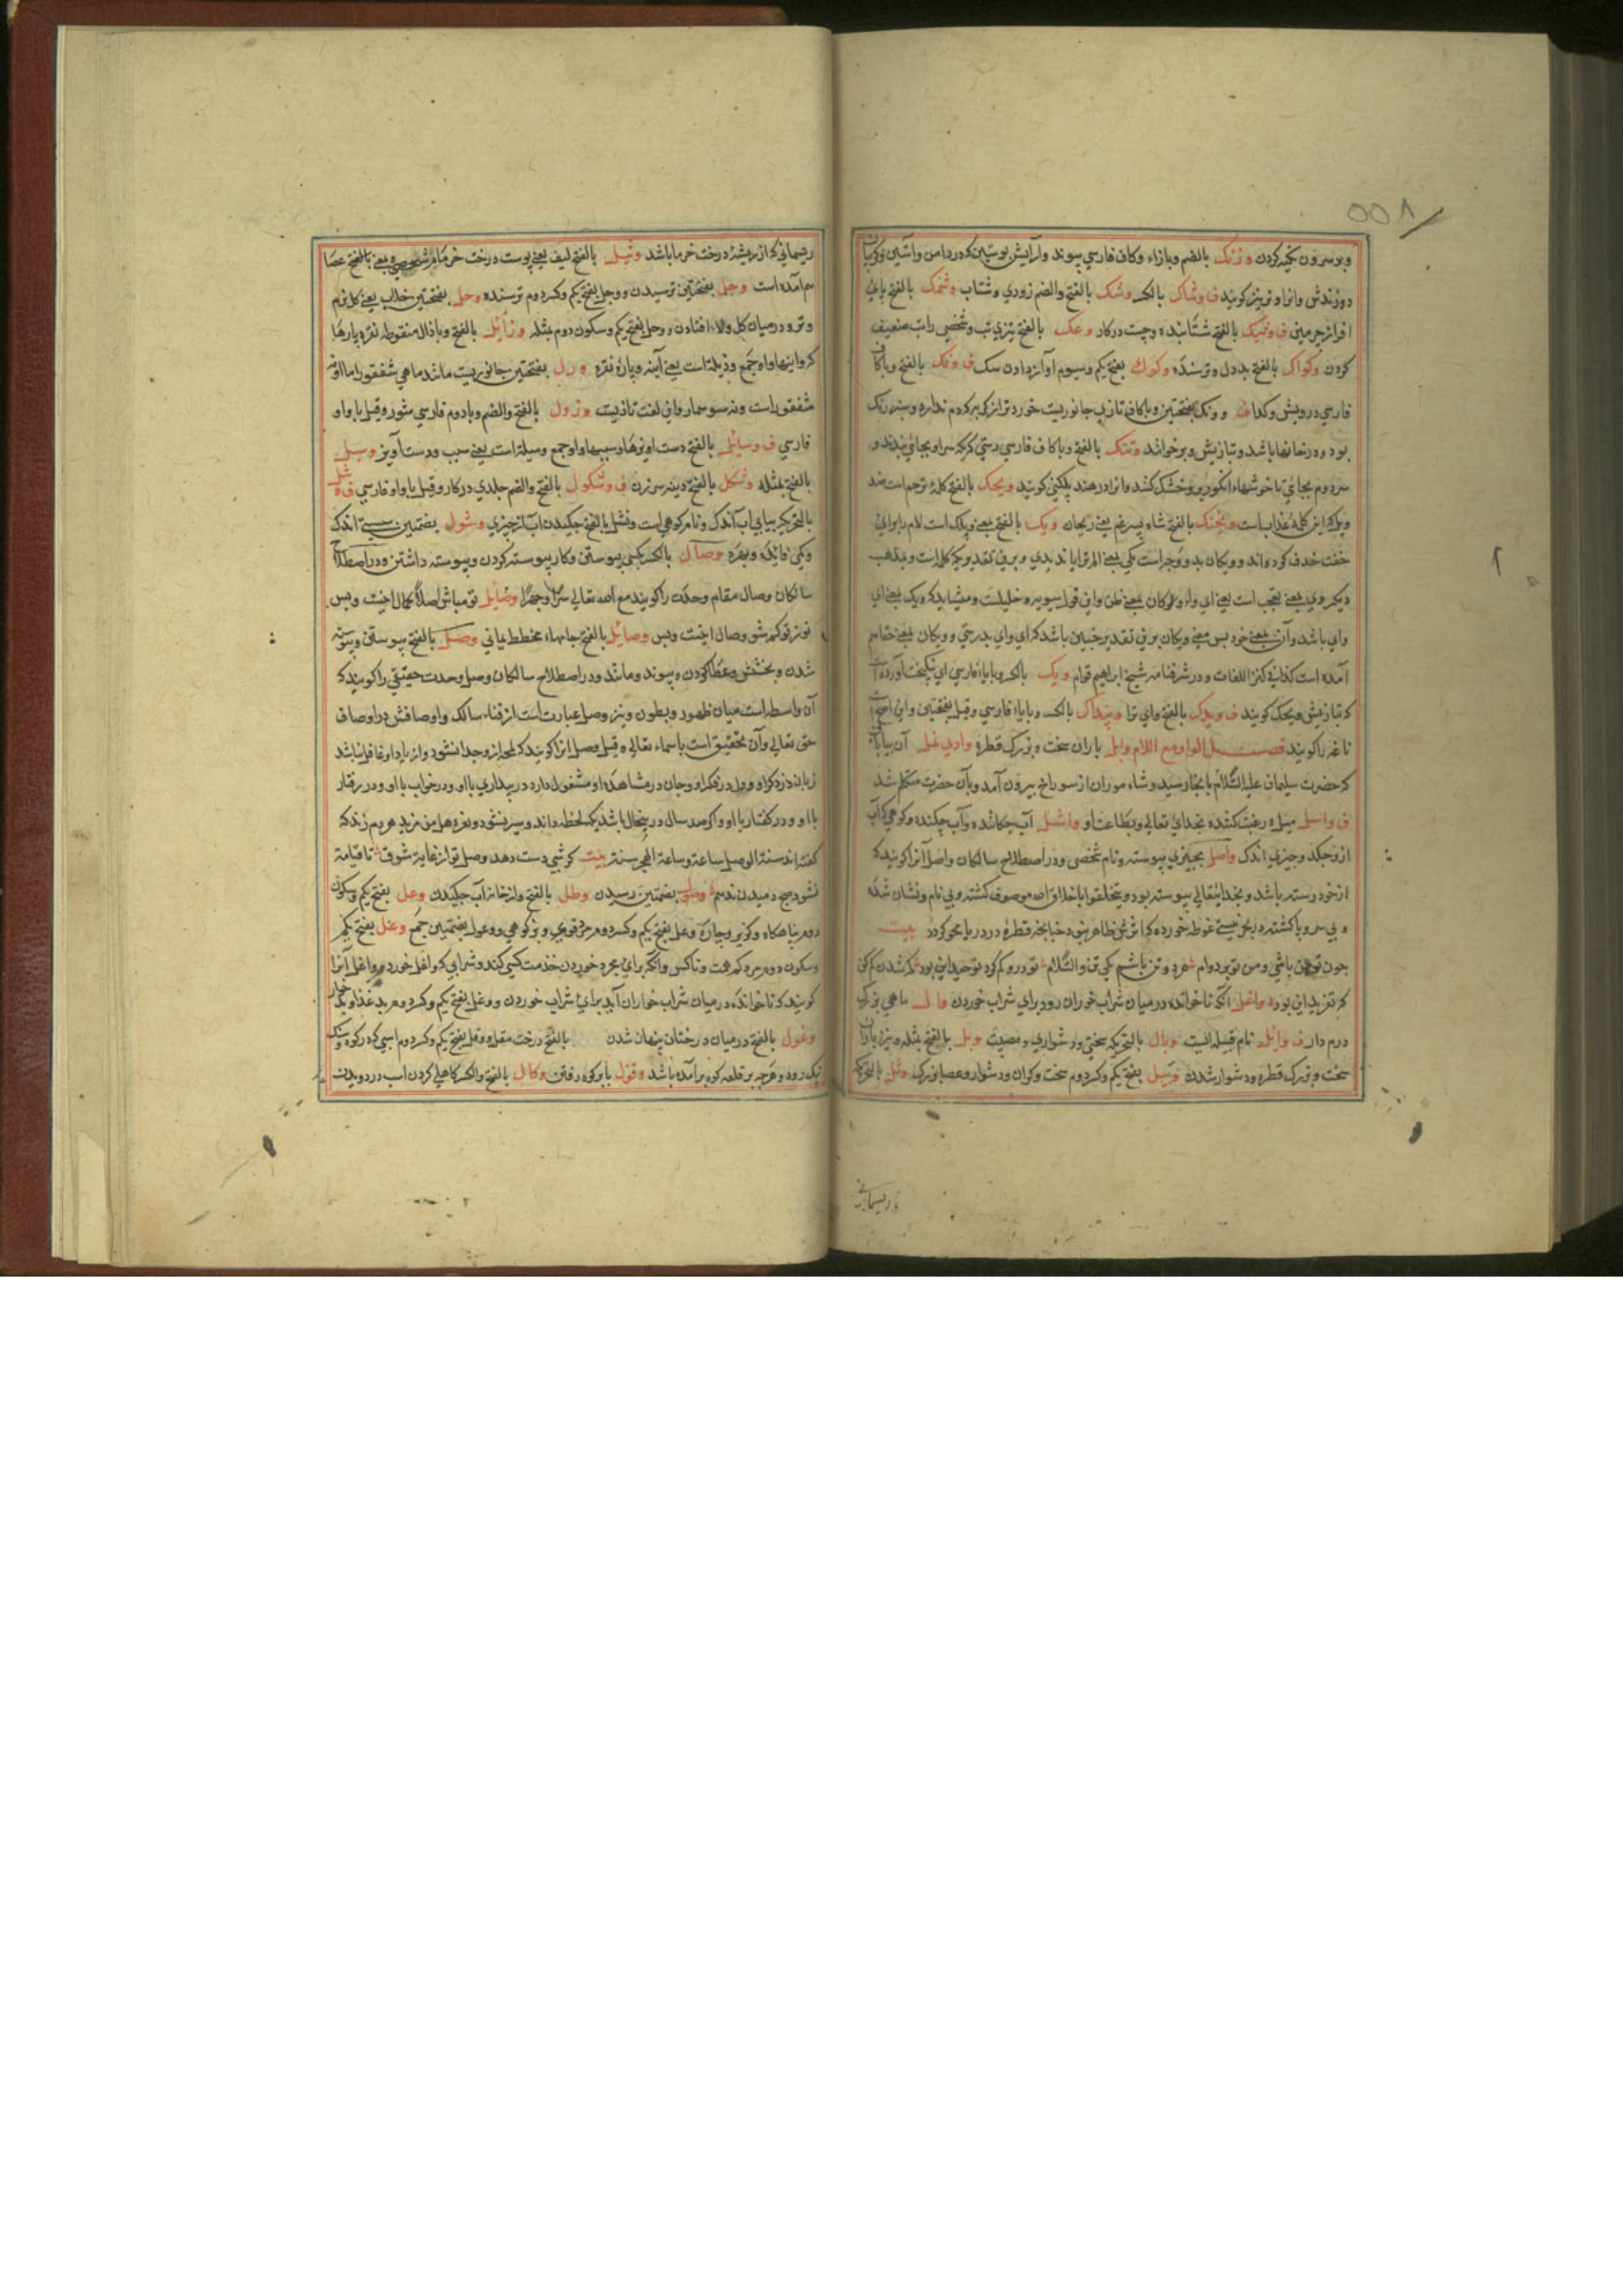 ۵۵۸
وبر سرون تکیه کردن وزنک بالضم وبازاء وکاف فارسي پیوند وآرایش پوستین که در دامن وآستین وکریبان
دوزندش وانرا ونریز کویند ف وشاک بالکسر وشک بالفتح والضم زودي وشتاب وشمک بالفتح پاي
افزار چرمین ف وشیک بالفتح شتابنده وچست در کار وعک بالفتح تیزي تب وشخصي راتب ضعیف
کردن وکواک بالفتح بددل وترسنده وکوک بفتح یکم وسیوم آواز دادن سک ف ونک بالفتح وباکاف
فارسي درویش وکدا وونک بفتحتین وباکاف تازي جانوریست خوردتر از کربه که دم ندارد
بود ودر خانها باشد وتبازیش وبر خوانند ونک بالفتح وباکاف فارسي رسني که یک سر او بجائي بندند و
سر دوم بجائي تا خوشهاء انکور برو خشک کنند وانرا در هند پلکني کویند ویحک بالفتح کلمۀ ترحم است ضد
ویلک که این کلمۀ عذاب است ویخنک بالفتح شاه سپرغم یعني ریحان ویک بالفتح بمعني ویلک است لام را براي
خفت حذف کرده اند وویکان بدو وجه است یکي بمعني الم تر
دیکر وي بمعني تعجب است یعني اي وا وکان بمعني ظن واین قول سیبویه وخلیلست
واي باشد وآن بمعني خود بس ویکان برین تقدیر چنین باشد که اي واي بدرستي وویکان بمعني
آمده است کذا في کنز اللغات ودر شرفنامه شیخ ابراهیم قوام ویک بالکسر وبایاء فارسي اي نیکبخت آورده است
که تبازیش ویحک کویند ف ویدک بالفتح واي ترا ویداک بالکسر وبایاء فارسي وقیل بفتحتین واین اصح است
ناغه را کویند فصل الواو مع اللام وابل باران سخت وبزرک قطره وادي نمل آن بیابان
که حضرت سلیمان علیه السّلام بانجا رسید وشاه موران از سوراخ بیرون آمد وبآن حضرت متکلم شد
ف واسل میل و رغبت کننده بخداي تعالي وبطاعت او واشل آب چکاننده وآب چکنده وکوهي که آب
ازو چکد وچیزي اندک واصل بچیزي پیوسته ونام شخصي ودر اصطلاح سالکان واصل آنرا کویند که
از خود رسته باشد وبخدایتعالي پیوسته بود وتخلقوا باخلاق الله موصوف کشته وبي نام ونشان شده
و بي سر وپا کشته در بحر نیستي غوطه خورده که اثر ظاهر نبود چنانچه قطرۀ در دریا محو کردد بیت
چون تو من باشي ومن تو بر دوام هر دو تن باشیم یکي تن والسّلام تو درو کم کرد توحید این بود کم شدن کم کن
که تفرید این بود واغل آنکه ناخوانده در میان شراب خوران رود براي شراب خوردن وال ماهي بزرک
درم دار ف وایل نام قبیله ایست وبال بالتحریک سختي ودشواري ومصیبت وبل بالفتح مثله ونیز باران
سخت وبزرک قطره ودشوار شدن وبیل بفتح یکم وکسر دوم سخت وکران ودشوار وعصاء بزرک وثل بالتحریک
ریسماني
ریسماني که از ریشۀ درخت خرما باشد وثیل بالفتح لیف یعني پوست درخت خرما بالفتح عصا
هم آمده است وجل بفتحتین ترسیدن ووجل بفتح یکم وکسر دوم ترسنده وحل بفتحتین خلاب یعني کل نرم
وتر ودر میان کل ولاء افتادن ووحل بفتح یکم وسکون دوم مثله وذایل بالفتح وباذال منقوطه نقره پارها
که واینها واو جمع وذیله است یعني آینه وپارۀ نقره ورل بفتحتین جانوریست مانند ماهي شقنقور اما او نه
شقنقور است ونه سوسمار واین لغت تازیست وزول بالفتح والضم وبادوم فارسي شور وقیل باواو
فارسي ف وسایل بالفتح دست اویزها وسببها واو جمع وسیله است یعني سبب ودست آویز وسیل
بالفتح مثله وشکل بالفتح دینه سرزن ف وشکول بالفتح والضم جلدي در کار وقیل باواو فارسي ف وشل
بالتحریک بیابي آب اندک ونام کوهي است ونشل بالفتح چکیدن آب از چیزي وشول بضمتین سستي اندک
وکمي فایده وبهره وصال بالکسر بکسي پیوستن وکار پیوسته کردن وپیوسته داشتن ودر اصطلاح
سالکان وصال مقام وحدت را کویند مع الله تعالي سرّاً وجهراً وصایل تو مباش اصلا کمال اینست وبس
تو ز تو کم شو وصال اینست وبس وصایل بالفتح جامهاء مخطط یماني وصل بالفتح پیوستن وپیوسته
شدن وبخشش وعطا کردن وپیوند ومانند ودر اصطلاح سالکان وصل وحدت حقیقي را کویند که
آن واسطه است میان ظهور وبطون ونیز وصل عبارت است از فناء سالک واوصافش در اوصاف
حق تعالي وآن تحقیق است باسماء تعالي وقیل وصل آنرا کویند که لمحه ازو جدا نشود واز یاد او غافل نباشد
زبان در ذکر او ودل در فکر او وجان در مشاهدۀ او مشغول دارد در بیداري با او ودر خواب با او ودر رفتار
با او ودر کفتار با او واکر صد سال در ینحال باشد یک لحظه داند وسیر نشود ونعره هل من مزید هر دم زند که
کفته اند سنة الوصل ساعة وساعة الهجر سنة بیت کر شبي دست دهد وصل تو از غایة شوق تا قیامة
نشود صبح دمیدن ندهم وصول بضمتین رسیدن وطل بالفتح واز خانه آب چکیدن وعل بفتح یکم وسکون
دوم پناهکاه وکریز وچاره وعل بفتح یکم وکسر دوم مرد قوي وبز کوهي ووعول بضمتین جمع وغل بفتح یکم
وسکون دوم مرد کم همت وناکس وآنکه براي مجرد خوردن خدمت کسي کند وشرابي که واغل خورد وواغل آنرا
کویند که ناخوانده در میان شراب خواران آید براي شراب خوردن ووغل بفتح یکم وکسر دوم بد غذا وبدخوار
وغول بالفتح در میان درختان پنهان شدن بالفتح درخت مقل ووقل بفتح یکم وکسر دوم اسپي که در کوه وسنک
نیک رود وهرچه بر قلعه کوه برآمده باشد وقول بابر کوه رفتن وکال بالفتح والکسر کاهلي کردن اسب در دویدن